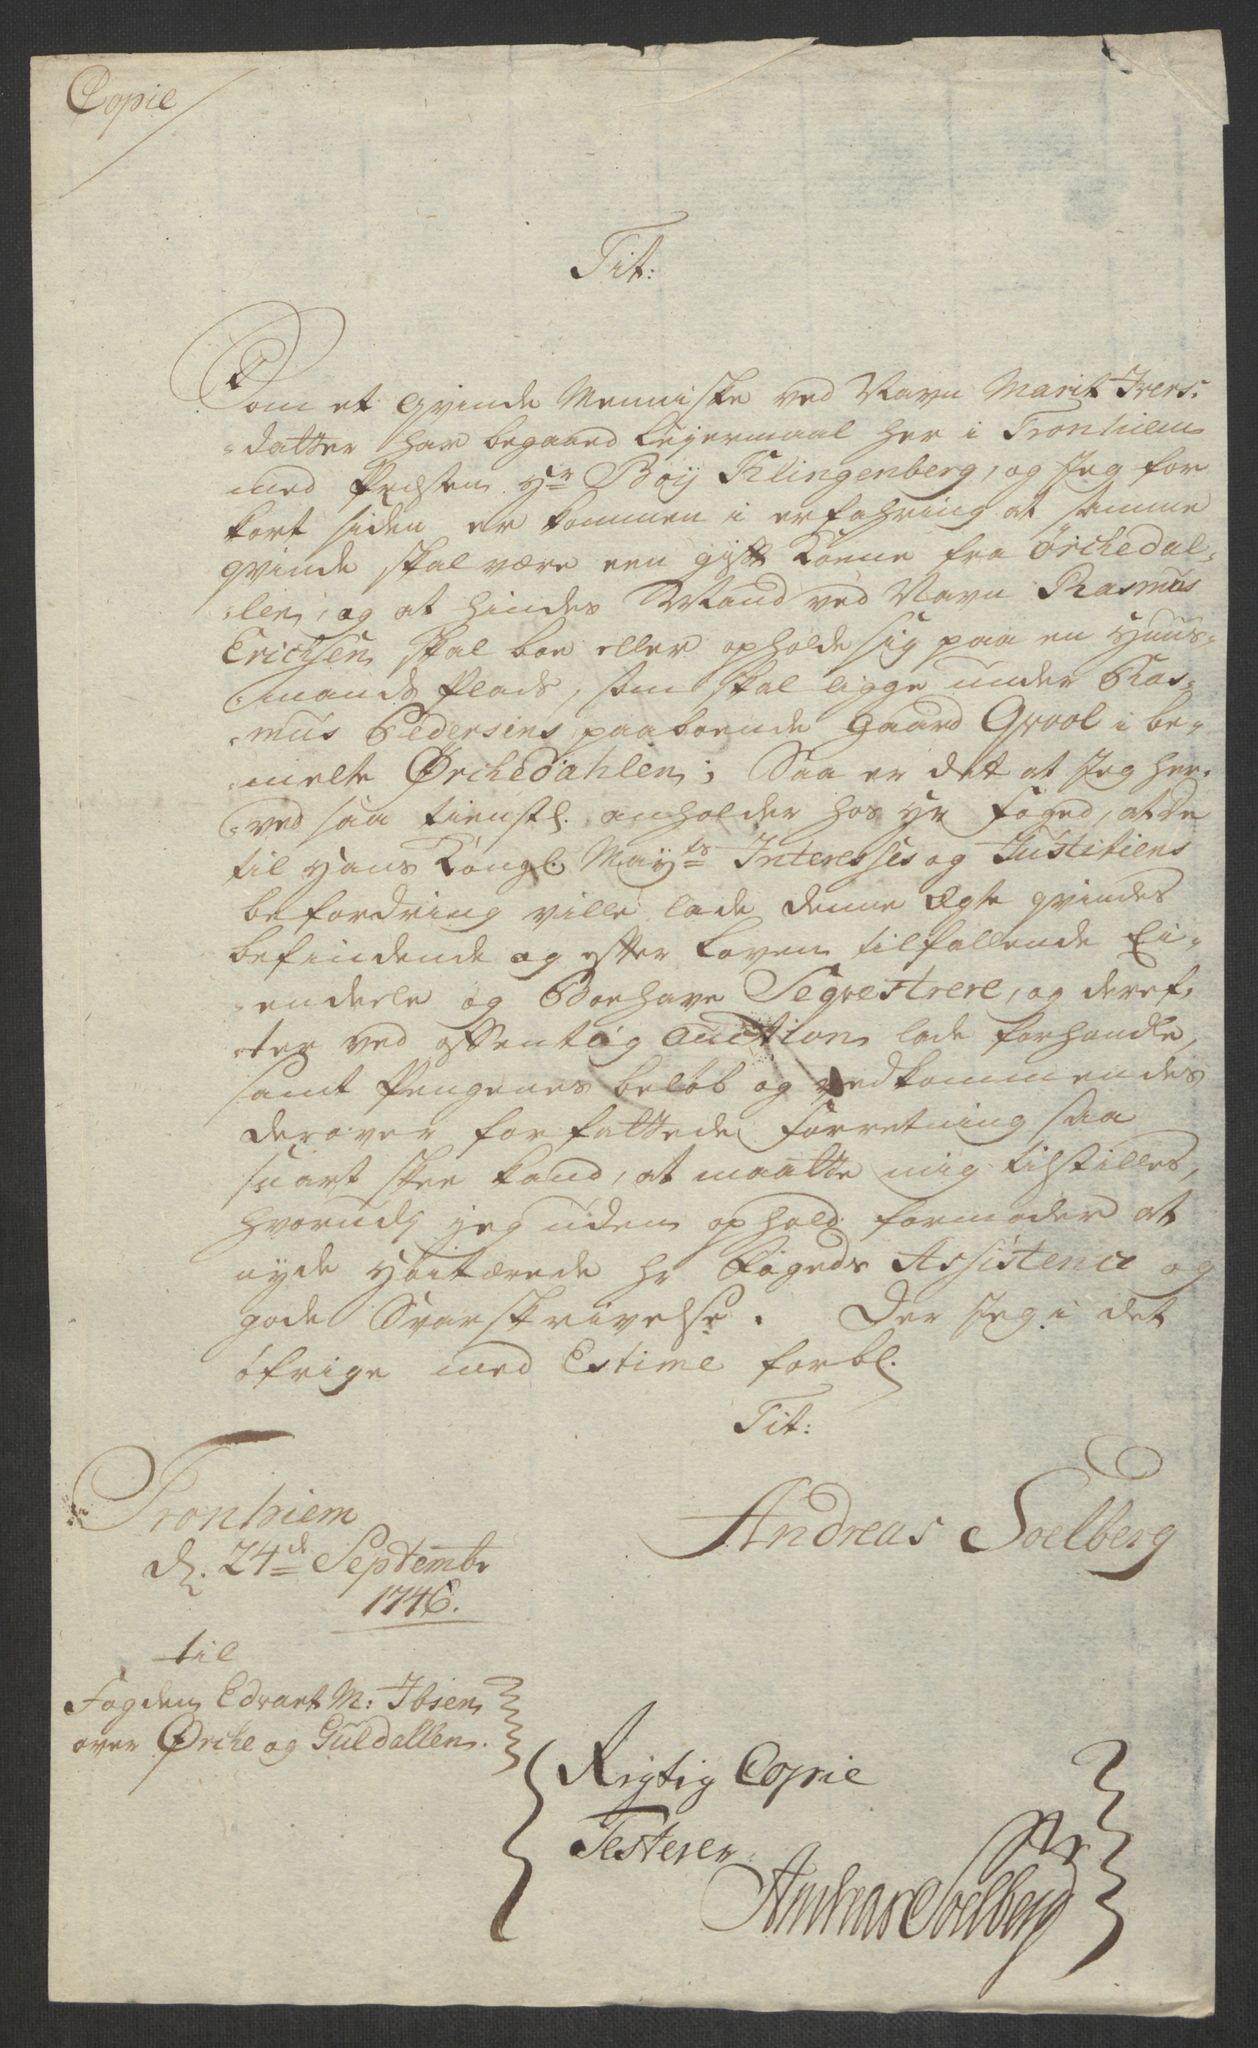 Copie
Tit:
Som et qvinde Menniske ved Navn Marit Ivers-
-datter har begaaed Leyermaal her i Tronhiem
med Præsten Hr Boij Klingenberg, og Jeg for
kort siden er kommen i erfahring at samme
qvinde skal være een gift Kone fra Örchedal-
-len, og at hindes Mand ved Navn Rasmus
Erichsen skal boe eller opholde sig paa en Huus-
-mands Plads, som skal ligge under Ras-
-mus Pedersens paaboende Gaard Qvool i be-
-melte Ørchedahlen; Saa er det at Jeg her-
-ved saa tienstl. anholder hos Hr Foged, at De
til Hans Kongl. Mayts Interesses og Justitiens
befordring ville lade denne Ægte qvindes
befindende og efter Loven tilfallende Ei-
-endeele og Boehave Seqvestrere, og deref-
-ter ved offentlig Auction lade forhandle,
samt Pengenes beløb og vedkommendes
derover forfattede Forretning saa
snart skee kand, at maatte mig tilstilles,
hvorudj jeg uden ophold formoder at
nyde Høitærede Hr Fogeds Assistence og
gode Svarskrivelse. Der Jeg i det
öfrige med Estime forbl.
Tit:
Tronhiem
d. 24de Septembr
1746.
Andreas Soelberg
til
Fogden Edvart M: Ibsen
over Ørche og Guldallen.
Rigtig Copie
Testerer
Andreas Soelberg